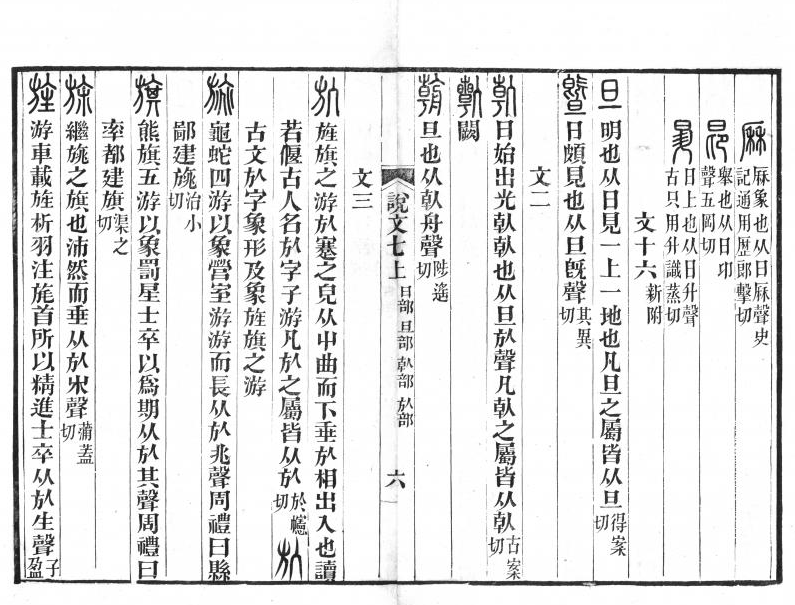 厤象也从日厤聲史記通用歷郎擊切
舉也从日卬聲五岡切
日上也从日升聲古只用升識蒸切
文十六新附
旦明也从日見一上一地也凡旦之屬皆从旦得案切
暨日頗見也从旦旣聲其異切
文二
倝日始出光倝倝也从旦㫃聲凡倝之屬皆从倝古案切
闕
旦也从倝舟聲陟遙切
文三
說文七上 日部 旦部 倝部 㫃部 六
㫃旌旗之游㫃蹇之皃从屮曲而下垂㫃相出入也讀
若偃古人名㫃字子游凡㫃之屬皆从㫃於幰切
古文㫃字象形及象旌旗之游
旐龜蛇四游以象營室游游而長从㫃兆聲周禮曰縣
鄙建旐治小切
旗熊旗五游以象罰星士卒以爲期从㫃其聲周禮曰
率都建旗渠之切
旆繼旐之旗也沛然而垂从㫃𣎵聲蒲蓋切
旌游車載旌析羽注旄首所以精進士卒从㫃生聲子盈